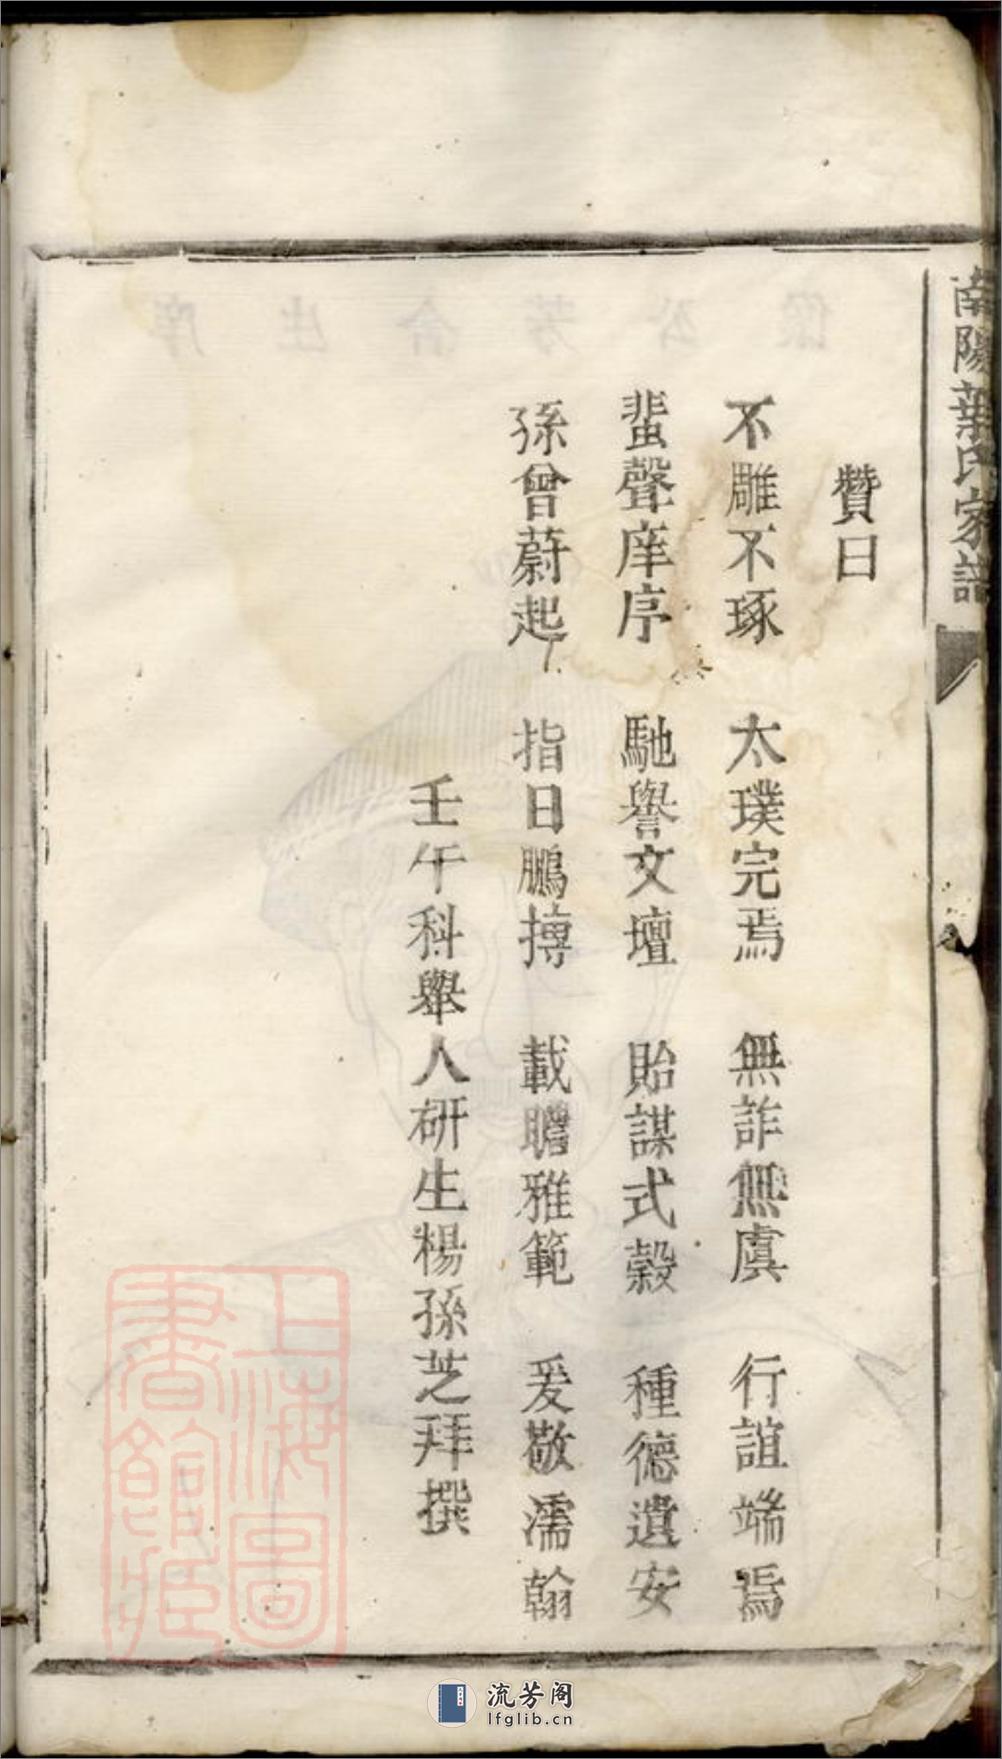 南陽葉氏家譜
贊曰
不雕不琢 太璞完焉 無詐無虞 行誼端焉
蜚聲庠序 馳譽文壇 貽謀式穀 種德遺安
孫曾蔚起 指日鵬摶 載瞻雅範 爰敬濡翰
壬午科舉人研生楊孫芝拜撰
像公芳侖生庠
上海圖書館藏
流芳阁
lfglib.cn